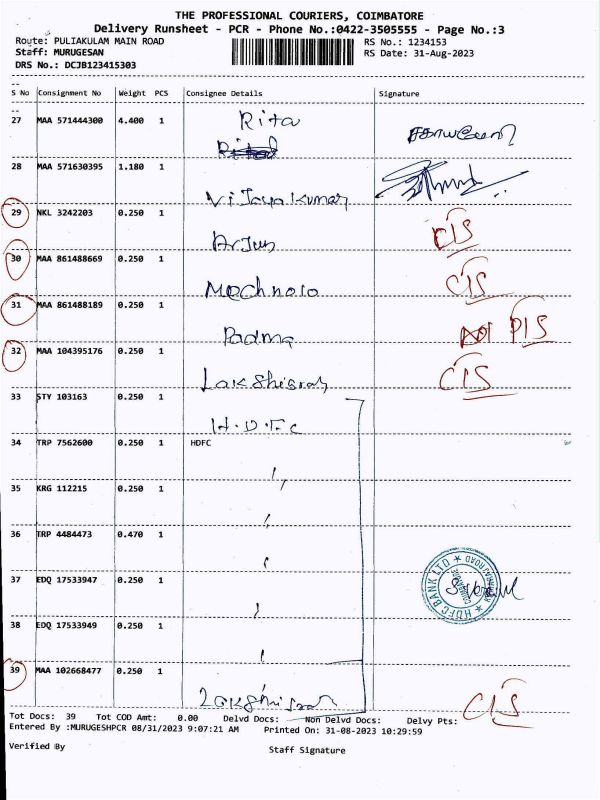 THE PROFESSIONAL COURIERS, COIMBATORE
Delivery Runsheet - PCR - Phone No.:0422-3505555 - Page No.:3
Route: PULIAKULAM MAIN ROAD RS No.: 1234153
Staff: MURUGESAN RS Date: 31-Aug-2023
DRS No.: DCJB123415303
S No Consignment No Weight PCS Consignee Details Signature
27 MAA 571444300 4.400 1 Rita
28 MAA 571630395 1.180 1 Vijayakumar
29 NKL 3242203 0.250 1 Arjun CIS
30 MAA 861488669 0.250 1 Mechnoro CIS
31 MAA 861488189 0.250 1 Padma PIS
32 MAA 104395176 0.250 1 CIS
33 STY 103163 0.250 1 H.D.F.C
34 TRP 7562600 0.250 1 HDFC
35 KRG 112215 0.250 1
36 TRP 4484473 0.470 1
37 EDQ 17533947 0.250 1
HDFC BANK LTD
COIMBATORE
38 EDQ 17533949 0.250 1
39 MAA 102668477 0.250 1 CIS
Tot Docs: 39 Tot COD Amt: 0.00 Delvd Docs: Non Delvd Docs: Delvy Pts:
Entered By :MURUGESHPCR 08/31/2023 9:07:21 AM Printed On: 31-08-2023 10:29:59
Verified By Staff Signature